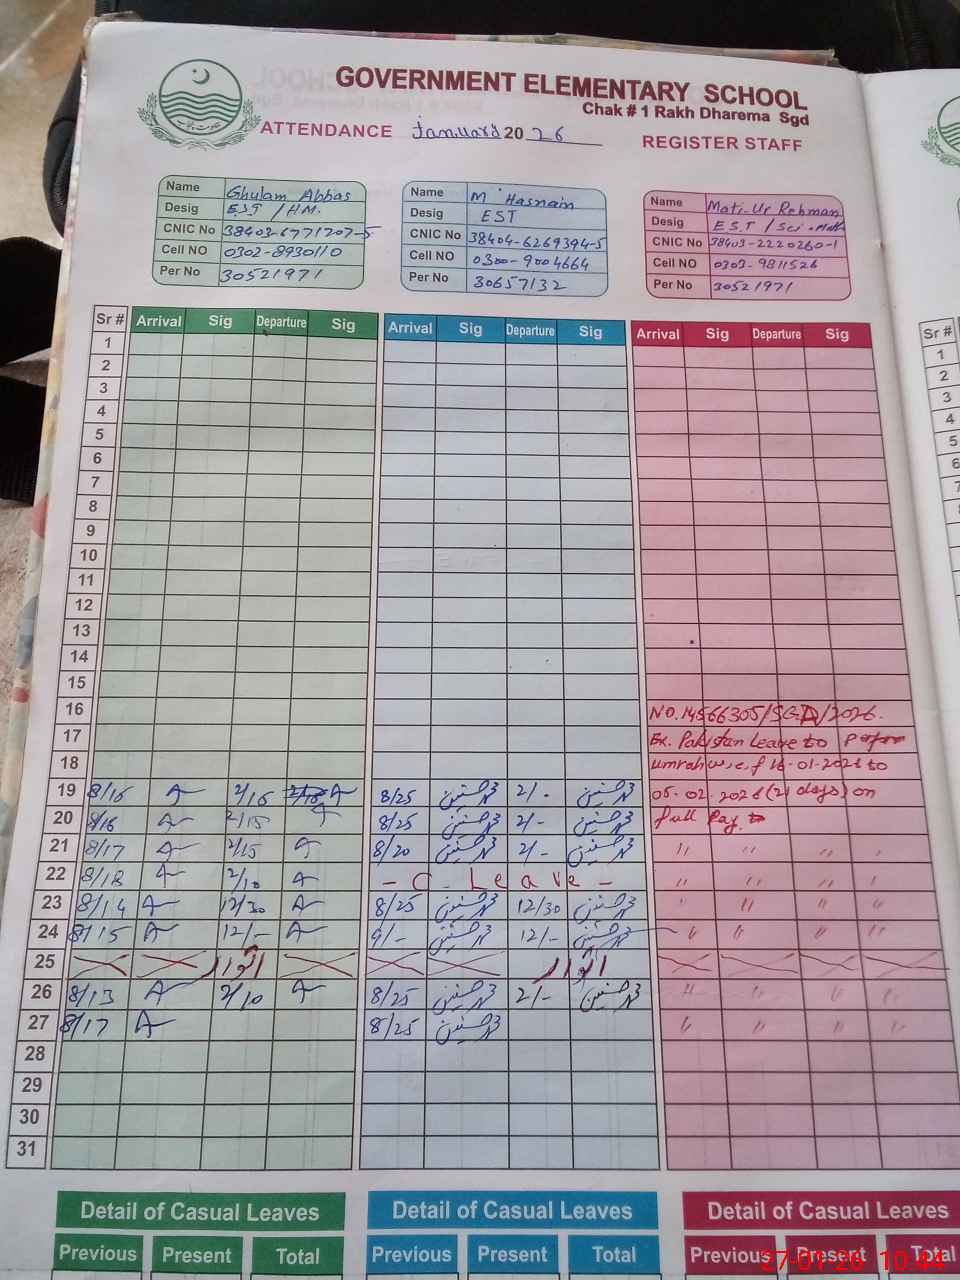 GOVERNMENT ELEMENTARY SCHOOL
Chak # 1 Rakh Dharema Sgd
ATTENDANCE January 2026
REGISTER STAFF
Name Ghulam Abbas
Desig EST / HM.
CNIC No 38403-6771207-5
Cell NO 0302-8930110
Per No 30521971
Name M Hasnain
Desig EST
CNIC No 38404-6269394-5
Cell NO 0300-9004664
Per No 30657132
Name Mati-Ur Rehman
Desig E.S.T / Sci-Math
CNIC No 38403-2220260-1
Cell NO 0303-9811526
Per No 30521971
Sr # Arrival Sig Departure Sig Arrival Sig Departure Sig Arrival Sig Departure Sig Sr #
1 1
2 2
3 3
4 4
5 5
6 6
7 7
8
9
10
11
12
13
14
15
16 NO.14566305/SED/2026.
17 Ex. Pakistan Leave to Perform
18 umrah w.e.f 16-01-2026 to
19 8/16 2/15 8/25 محمد حسنین 2/- محمد حسنین 05-02-2026 (21 days) on
20 8/16 2/15 8/25 محمد حسنین 2/- محمد حسنین full Pay.
21 8/17 2/15 8/20 محمد حسنین 2/- محمد حسنین " " " "
22 8/18 2/10 - C. Leave - " " " "
23 8/14 12/30 8/25 محمد حسنین 12/30 محمد حسنین " " " "
24 8/15 12/- 9/- محمد حسنین 12/- محمد حسنین " " " "
25 اتوار اتوار
26 8/13 2/10 8/25 محمد حسنین 2/- محمد حسنین " " " "
27 8/17 8/25 محمد حسنین " " " "
28
29
30
31
Detail of Casual Leaves Detail of Casual Leaves Detail of Casual Leaves
Previous Present Total Previous Present Total Previous Present Total
27-01-26 10:44